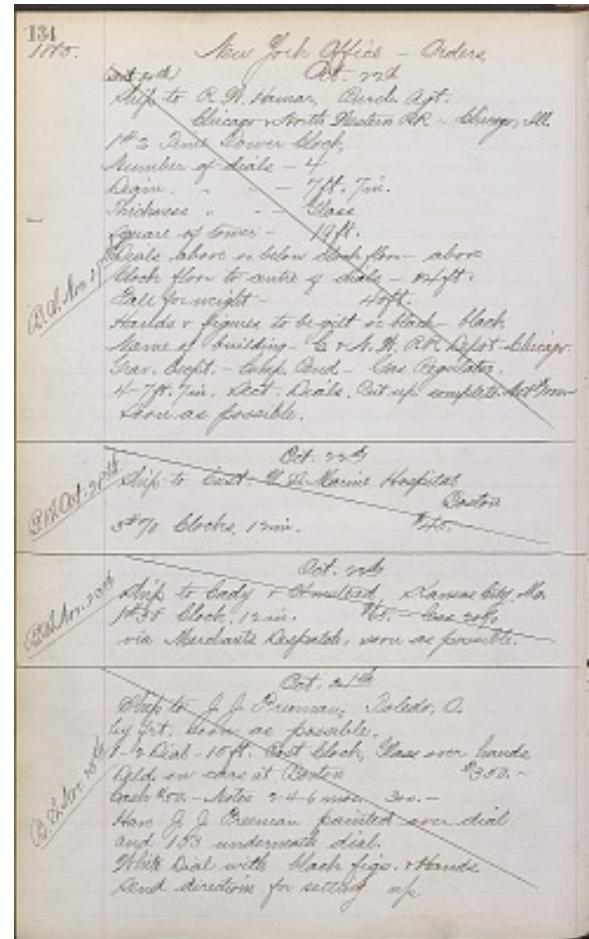 134
1885.
New York Office - Orders,
Oct. 22d
Ship to R. W. Hamar, Purch. Agt.
Chicago & North Western RR - Chicago, Ill.
1 #2 Time Tower Clock,
Number of dials - 4
Diam. " " - 7 ft. 7 in.
Thickness " - Glass
Square of tower - 19 ft.
Dials above or below clock floor - above
Clock floor to centre of dials - ft.
Fall for weight - 40 ft.
Hands & figures to be gilt or black - black
Name of building - C & N. W. RR Depot - Chicago.
Grav. Escpt. - Comp. Pend - Gas Regulator.
4 - 7 ft. 7 in. Sect. Dials. Put up complete
soon as possible.
B.O. Nov.
Oct. 22d
Ship to Cust. U.S. Marine Hospital
Boston
3 #70 Clocks, 12 in. $40.
Oct. 28th
Oct. 22d
Ship to Cady & Olmstead, Kansas City, Mo.
1 #38 Clock, 12 in. $65. - Less 20%
via Merchants Despatch, soon as possible.
Nov. 20th
Oct. 21st
Ship to J. J. Freeman, Toledo, O.
by frt. soon as possible.
1 - 2 Dial - Post Clock, Glass over hands
Deld. on cars at Boston $350. -
Cash $50 - Notes 2 4 6 mos. 300. -
Have J. J. Freeman painted over dial
and 153 underneath dial.
White Dial with black figs. & Hands.
Send directions for setting up
Nov. 25th